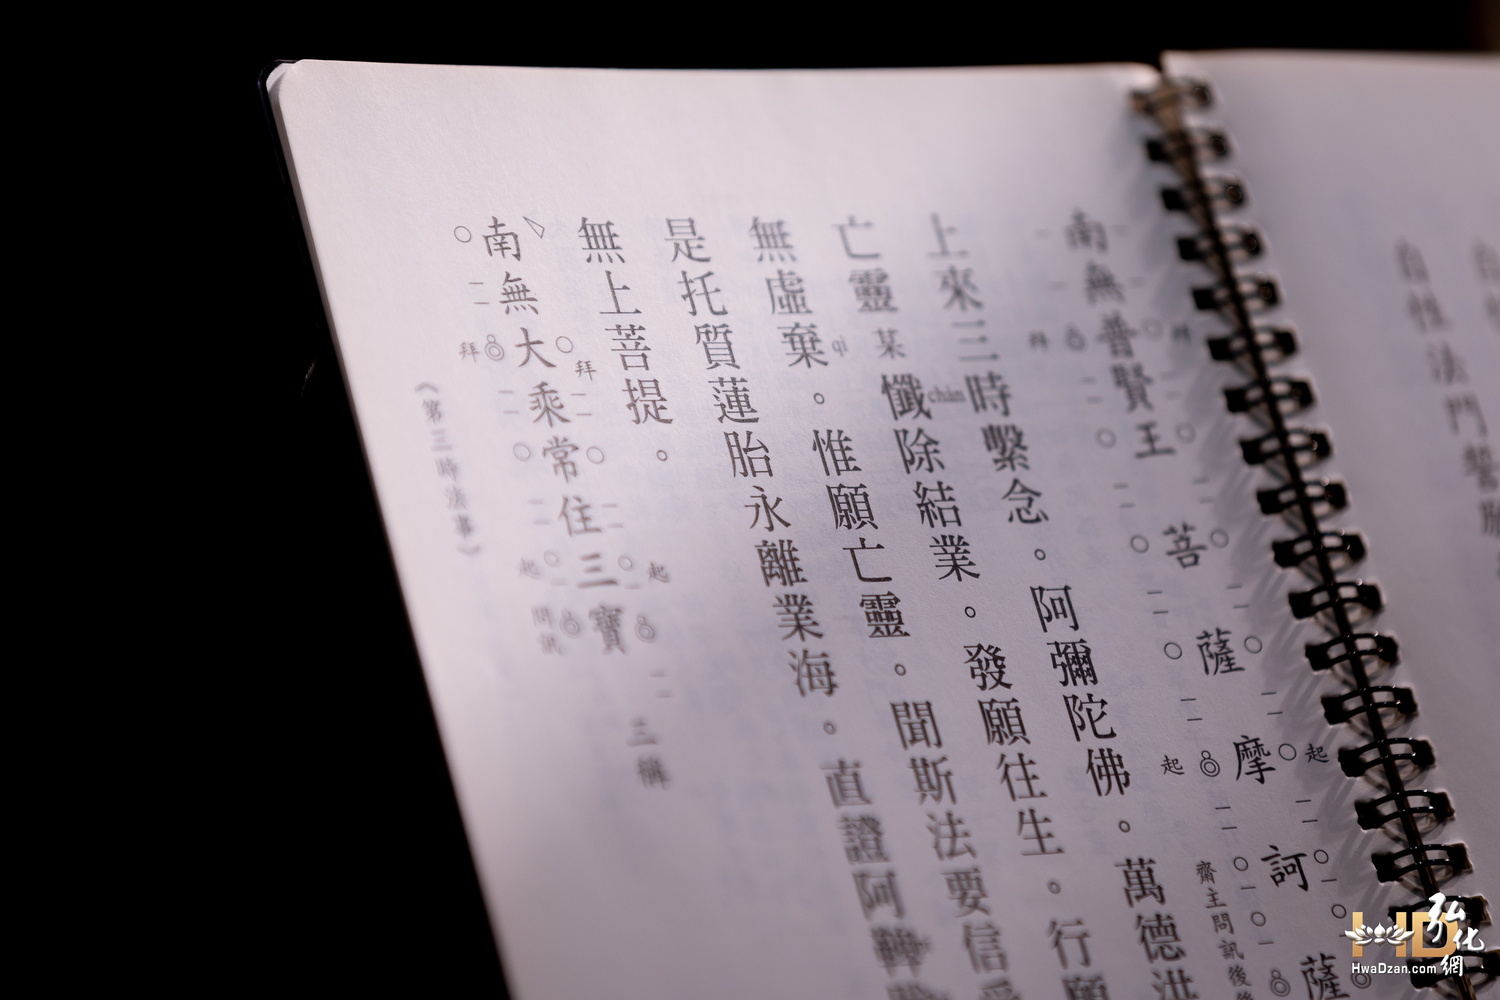 自性法門誓願
南無普賢王菩薩摩訶薩
拜
拜
起
起
齋主問訊後
上來三時繫念。阿彌陀佛。萬德洪
亡靈某懺chàn除結業。發願往生。行願
無虛棄qì。惟願亡靈。聞斯法要信受
是托質蓮胎永離業海。直證阿鞞
無上菩提。
南無大乘常住三寶
三稱
拜
起
拜
起
問訊
《第三時法事》
HD
弘化網
HwaDzan.com